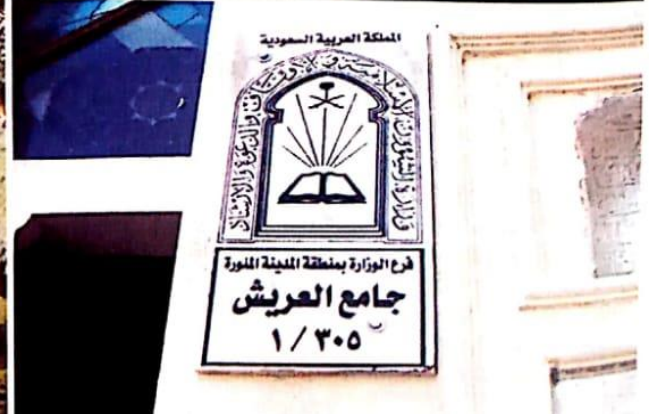 المملكة العربية السعودية
وزارة الشئون الإسلامية والأوقاف والدعوة والإرشاد
فرع الوزارة بمنطقة المدينة المنورة
جامع العريش
١ / ٣٠٥